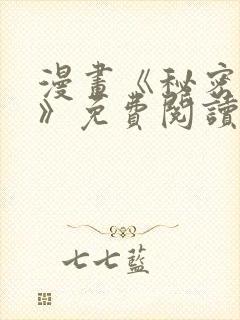 漫畫《秘密
》免費閱讀
七七藍